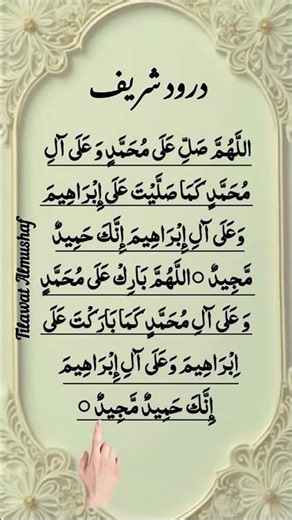 درود شریف
اللَّهُمَّ صَلِّ عَلَى مُحَمَّدٍ وَعَلَى آلِ
مُحَمَّدٍ كَمَا صَلَّيْتَ عَلَى إِبْرَاهِيمَ
وَعَلَى آلِ إِبْرَاهِيمَ إِنَّكَ حَمِيدٌ
مَّجِيدٌ ○ اللَّهُمَّ بَارِكْ عَلَى مُحَمَّدٍ
وَعَلَى آلِ مُحَمَّدٍ كَمَا بَارَكْتَ عَلَى
اِبْرَاهِيمَ وَعَلَى آلِ إِبْرَاهِيمَ
إِنَّكَ حَمِيدٌ مَّجِيدٌ ○
Tilawat Almushaf